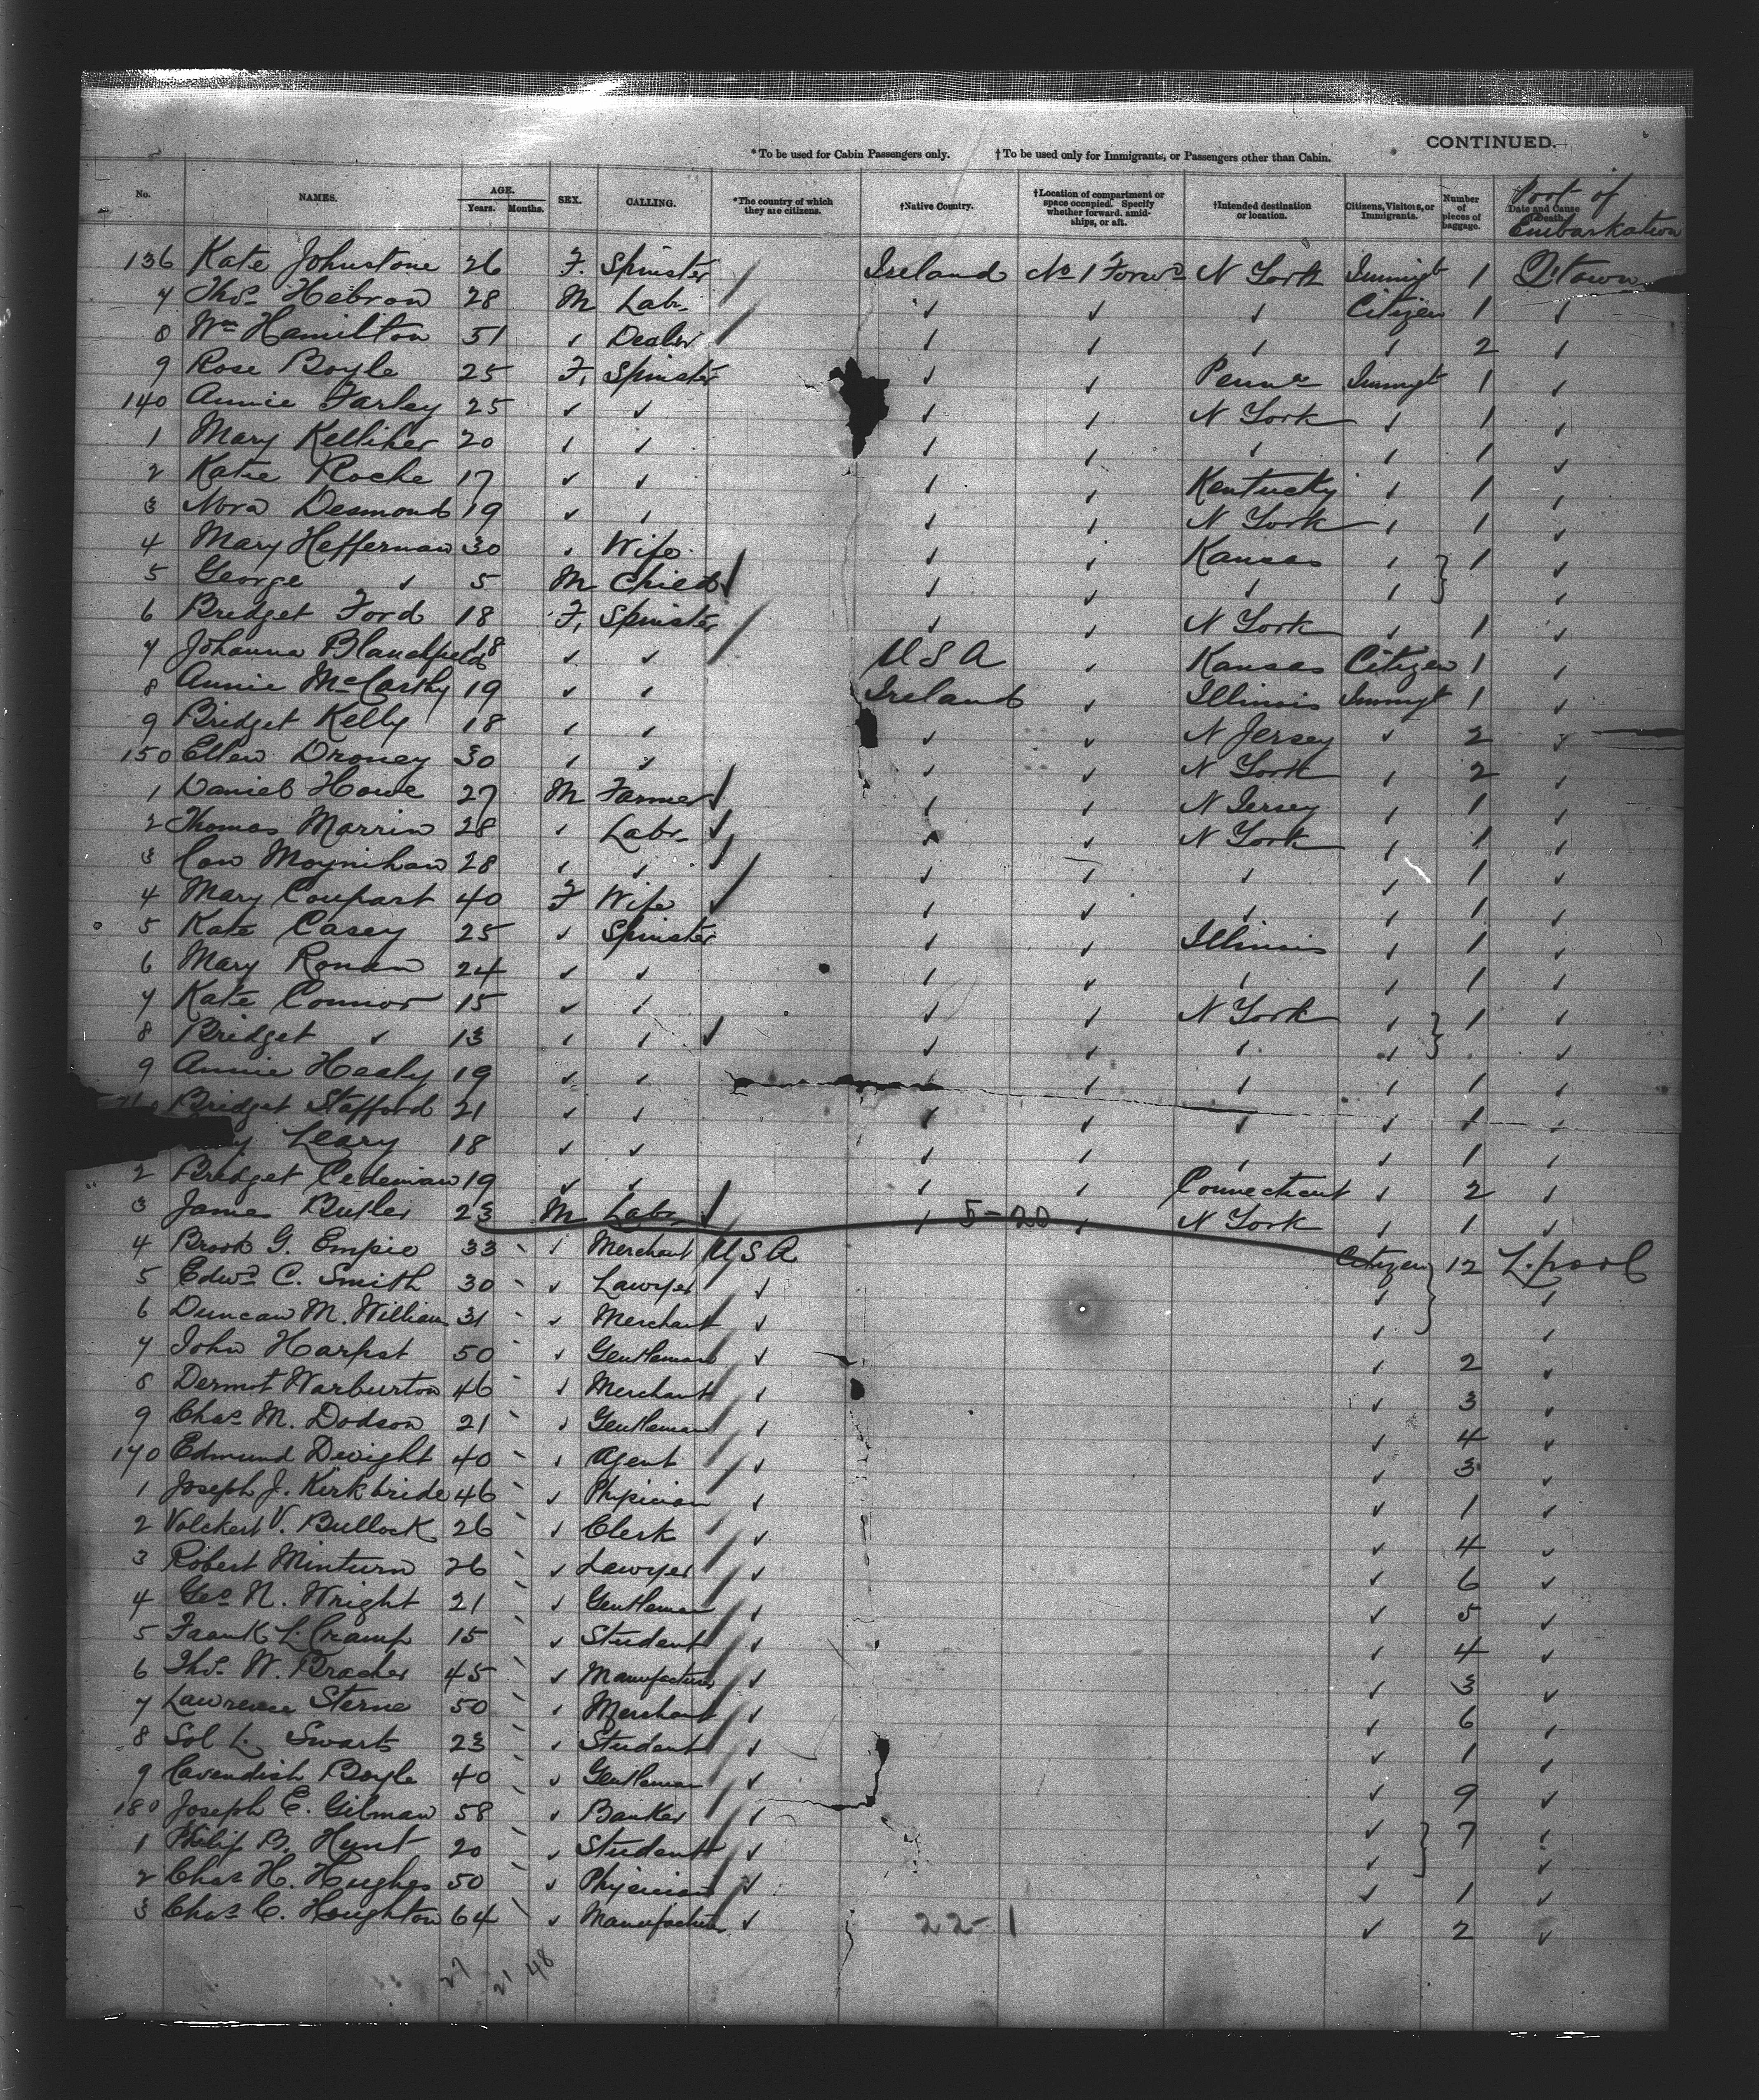 CONTINUED.
* To be used for Cabin Passengers only. † To be used only for Immigrants, or Passengers other than Cabin.
No. NAMES. AGE. Years. Months. SEX. CALLING. *The country of which they are citizens. †Native Country. †Location of compartment or space occupied. Specify whether forward, amidships, or aft. †Intended destination or location. Citizens, Visitors, or Immigrants. Number of pieces of baggage. Date and Cause of Death. Port of Embarkation
136 Kate Johnstone 26 F. Spinster Ireland No 1 Forwd N York Immigt 1 Q'town
7 Thos Hebron 28 M Labr ✓ ✓ ✓ Citizen 1 ✓
8 Wm Hamilton 51 ✓ Dealer ✓ ✓ ✓ ✓ 2 ✓
9 Rose Boyle 25 F. Spinster ✓ ✓ Penna Immigt 1 ✓
140 Annie Farley 25 ✓ ✓ ✓ ✓ N York ✓ 1 ✓
1 Mary Kelliher 20 ✓ ✓ ✓ ✓ ✓ ✓ 1 ✓
2 Katie Roche 17 ✓ ✓ ✓ ✓ Kentucky ✓ 1 ✓
3 Nora Desmond 19 ✓ ✓ ✓ ✓ N York ✓ 1 ✓
4 Mary Heffernan 30 ✓ Wife ✓ ✓ Kansas ✓ } 1 ✓
5 George ✓ 5 M Child ✓ ✓ ✓ ✓ ✓
6 Bridget Ford 18 F. Spinster ✓ ✓ N York ✓ 1 ✓
7 Johanna Blanchfield 18 ✓ ✓ U S A ✓ Kansas Citizen 1 ✓
8 Annie McCarthy 19 ✓ ✓ Ireland ✓ Illinois Immigt 1 ✓
9 Bridget Kelly 18 ✓ ✓ ✓ ✓ N Jersey ✓ 2 ✓
150 Ellen Droney 30 ✓ ✓ ✓ ✓ N York ✓ 2 ✓
1 Daniel Howe 27 M Farmer ✓ ✓ N Jersey ✓ 1 ✓
2 Thomas Marrin 28 ✓ Labr ✓ ✓ N York ✓ 1 ✓
3 Con Moynihan 28 ✓ ✓ ✓ ✓ ✓ ✓ 1 ✓
4 Mary Coupart 40 F Wife ✓ ✓ ✓ ✓ 1 ✓
5 Kate Casey 25 ✓ Spinster ✓ ✓ Illinois ✓ 1 ✓
6 Mary Ronan 24 ✓ ✓ ✓ ✓ ✓ ✓ 1 ✓
7 Kate Connor 15 ✓ ✓ ✓ ✓ N York ✓ } 1 ✓
8 Bridget ✓ 13 ✓ ✓ ✓ ✓ ✓ ✓ ✓
9 Annie Healy 19 ✓ ✓ ✓ ✓ ✓ ✓ 1 ✓
Bridget Stafford 21 ✓ ✓ ✓ ✓ ✓ ✓ 1 ✓
Leary 18 ✓ ✓ ✓ ✓ ✓ ✓ 1 ✓
2 Bridget 19 ✓ ✓ ✓ ✓ Connecticut ✓ 2 ✓
3 James Butler 23 M Labr ✓ 5-20 ✓ N York ✓ 1 ✓
4 Brook G. Empie 33 ✓ Merchant U S A Citizen } 12 L.pool
5 Edwd C. Smith 30 ✓ Lawyer ✓ ✓ ✓
6 Duncan M. William 31 ✓ Merchant ✓ ✓ ✓
7 John Harpst 50 ✓ Gentleman ✓ ✓ 2 ✓
8 Dermot Warburton 46 ✓ Merchant ✓ ✓ 3 ✓
9 Chas M. Dodson 21 ✓ Gentleman ✓ ✓ 4 ✓
170 Edmund Dwight 40 ✓ Agent ✓ ✓ 3 ✓
1 Joseph J. Kirkbride 46 ✓ Physician ✓ ✓ 1 ✓
2 Volckert V. Bullock 26 ✓ Clerk ✓ ✓ 4 ✓
3 Robert Minturn 26 ✓ Lawyer ✓ ✓ 6 ✓
4 Geo N. Wright 21 ✓ Gentleman ✓ ✓ 5 ✓
5 Frank L. Cramp 15 ✓ Student ✓ ✓ 4 ✓
6 Thos W. Bracher 45 ✓ Manufacturer ✓ ✓ 3 ✓
7 Lawrence Sterne 50 ✓ Merchant ✓ ✓ 6 ✓
8 Sol L. Swarts 23 ✓ Student ✓ ✓ 1 ✓
9 Cavendish Boyle 40 ✓ Gentleman ✓ ✓ 9 ✓
180 Joseph E. Gilman 58 ✓ Banker ✓ ✓ } 7 ✓
1 Philip B. Hunt 20 ✓ Student ✓ ✓ ✓
2 Chas H. Hughes 50 ✓ Physician ✓ ✓ 1 ✓
3 Chas C. Houghton 64 ✓ Manufacturer ✓ 22-1 ✓ 2 ✓
27 21 48